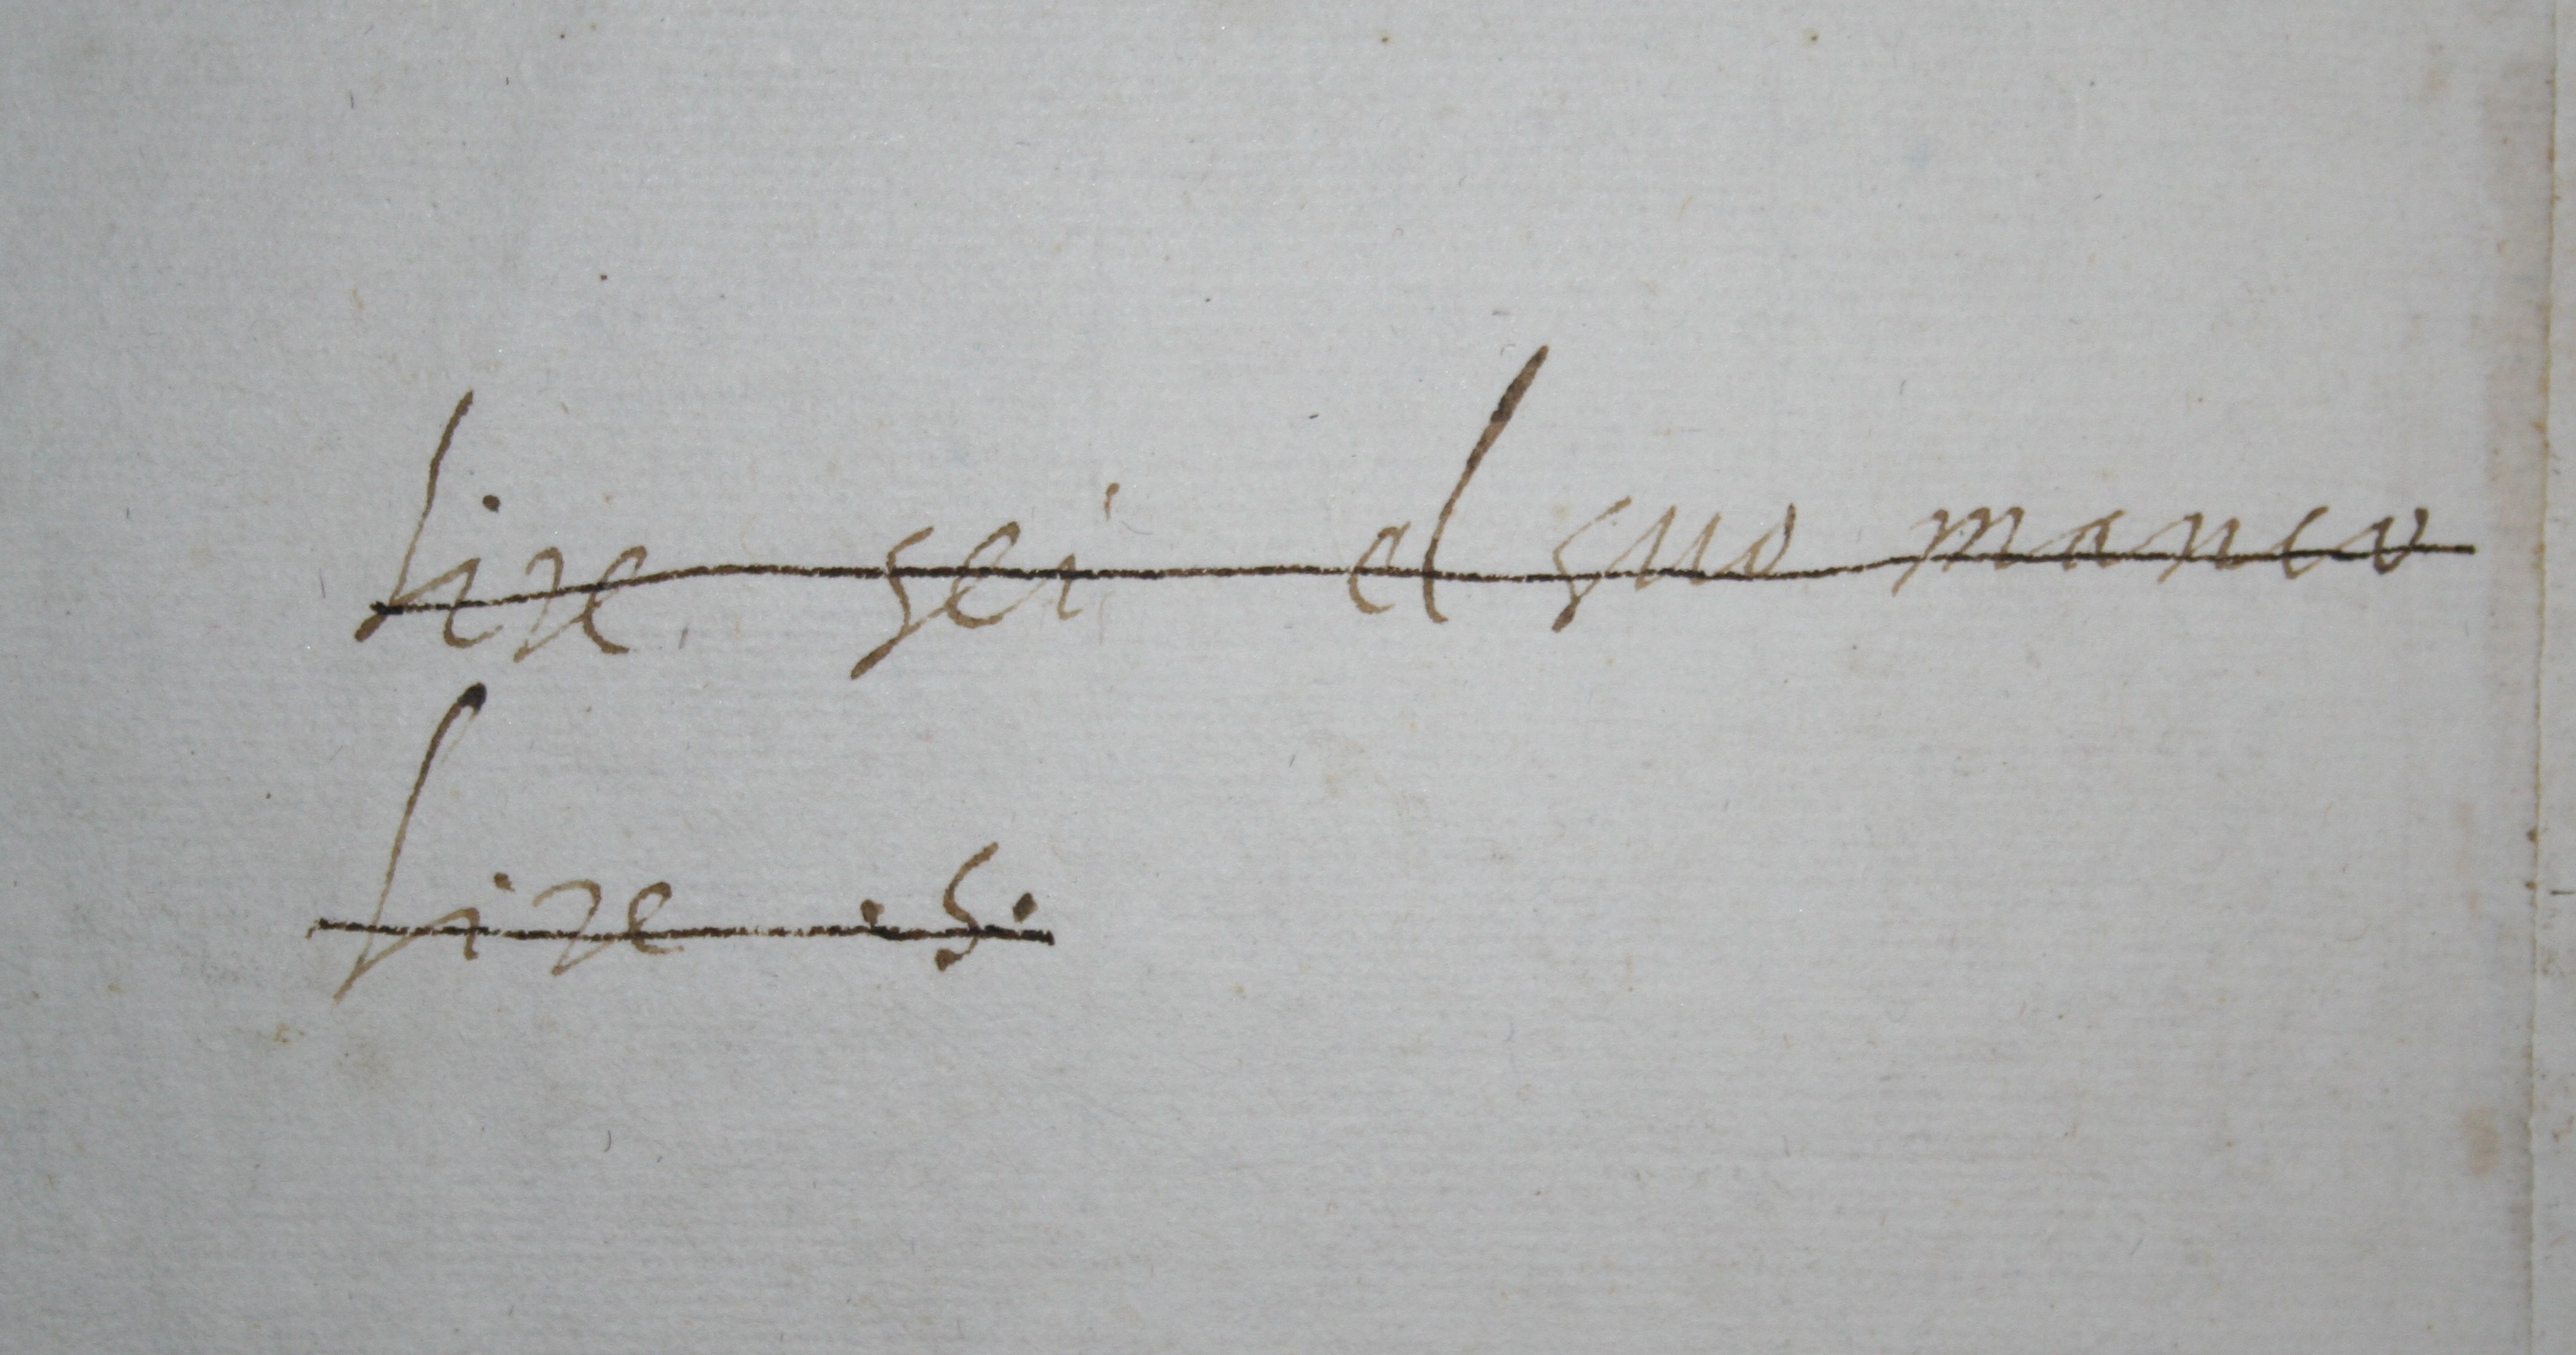 lire sei el suo manco
lire .5.